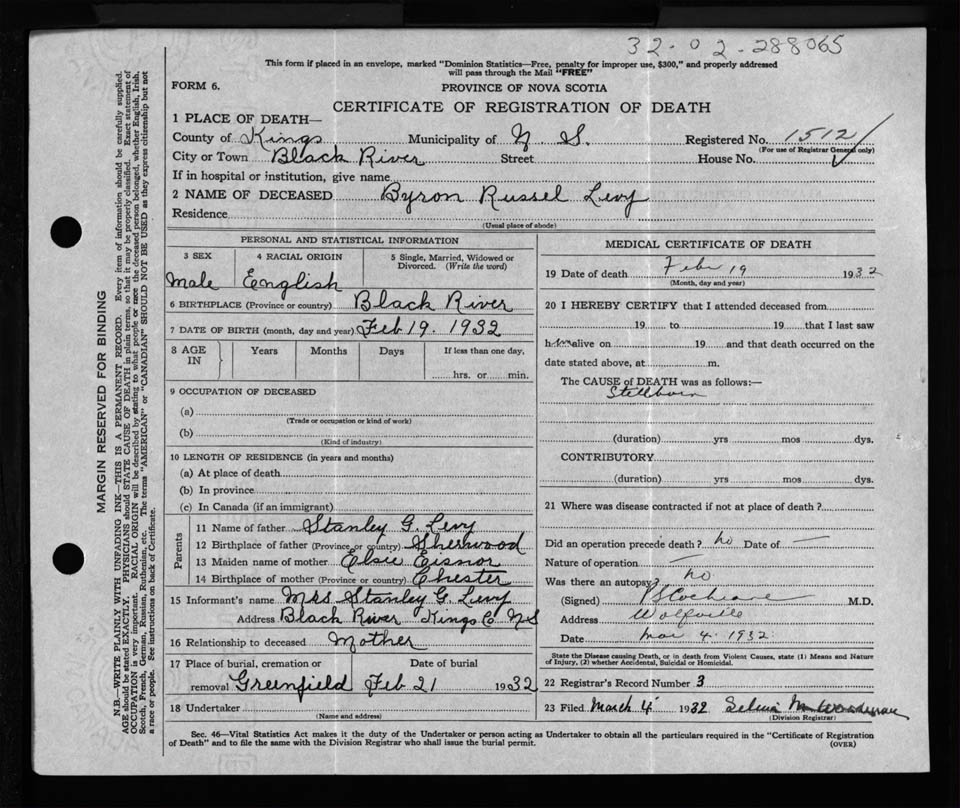 32-02-288065
This form if placed in an envelope, marked "Dominion Statistics—Free, penalty for improper use, $300," and properly addressed
will pass through the Mail "FREE"
FORM 6.
PROVINCE OF NOVA SCOTIA
CERTIFICATE OF REGISTRATION OF DEATH
1 PLACE OF DEATH—
County of Kings Municipality of N. S. Registered No. 1512
(For use of Registrar General only)
City or Town Black River Street House No.
If in hospital or institution, give name
2 NAME OF DECEASED Byron Russel Levy
Residence
(Usual place of abode)
PERSONAL AND STATISTICAL INFORMATION
3 SEX 4 RACIAL ORIGIN 5 Single, Married, Widowed or Divorced. (Write the word)
Male English
6 BIRTHPLACE (Province or country) Black River
7 DATE OF BIRTH (month, day and year) Feb 19. 1932
8 AGE IN Years Months Days If less than one day,
hrs. or min.
9 OCCUPATION OF DECEASED
(a)
(Trade or occupation or kind of work)
(b)
(Kind of industry)
10 LENGTH OF RESIDENCE (in years and months)
(a) At place of death
(b) In province
(c) In Canada (if an immigrant)
Parents
11 Name of father Stanley G. Levy
12 Birthplace of father (Province or country) Sherwood
13 Maiden name of mother Elsie Eisnor
14 Birthplace of mother (Province or country) Chester
15 Informant's name Mrs Stanley G. Levy
Address Black River Kings Co NS
16 Relationship to deceased Mother
17 Place of burial, cremation or Date of burial
removal Greenfield Feb 21 1932
18 Undertaker
(Name and address)
MEDICAL CERTIFICATE OF DEATH
19 Date of death Feb 19 1932
(Month, day and year)
20 I HEREBY CERTIFY that I attended deceased from
19 to 19 that I last saw
h alive on 19 and that death occurred on the
date stated above, at m.
The CAUSE of DEATH was as follows:—
Stillborn
(duration) yrs mos dys.
CONTRIBUTORY
(duration) yrs mos dys.
21 Where was disease contracted if not at place of death?
Did an operation precede death? no Date of —
Nature of operation —
Was there an autopsy? no
(Signed) Cochrane M.D.
Address Wolfville
Date Mar 4. 1932
State the Disease causing Death, or in death from Violent Causes, state (1) Means and Nature
of Injury, (2) whether Accidental, Suicidal or Homicidal.
22 Registrar's Record Number 3
23 Filed March 4 1932 Selina M
(Division Registrar)
Sec. 46—Vital Statistics Act makes it the duty of the Undertaker or person acting as Undertaker to obtain all the particulars required in the "Certificate of Registration
of Death" and to file the same with the Division Registrar who shall issue the burial permit.
(OVER)
MARGIN RESERVED FOR BINDING
N.B.—WRITE PLAINLY WITH UNFADING INK—THIS IS A PERMANENT RECORD. Every item of information should be carefully supplied.
AGE should be stated EXACTLY. PHYSICIANS should STATE CAUSE OF DEATH in plain terms, so that it may be properly classified. Exact statement of
OCCUPATION is very important. RACIAL ORIGIN will be described by stating to what people or race the deceased person belonged, whether English, Irish,
Scotch, French, German, Russian, Ruthenian, etc. The terms "AMERICAN" or "CANADIAN" SHOULD NOT BE USED as they express citizenship but not
a race or people. See instructions on back of Certificate.